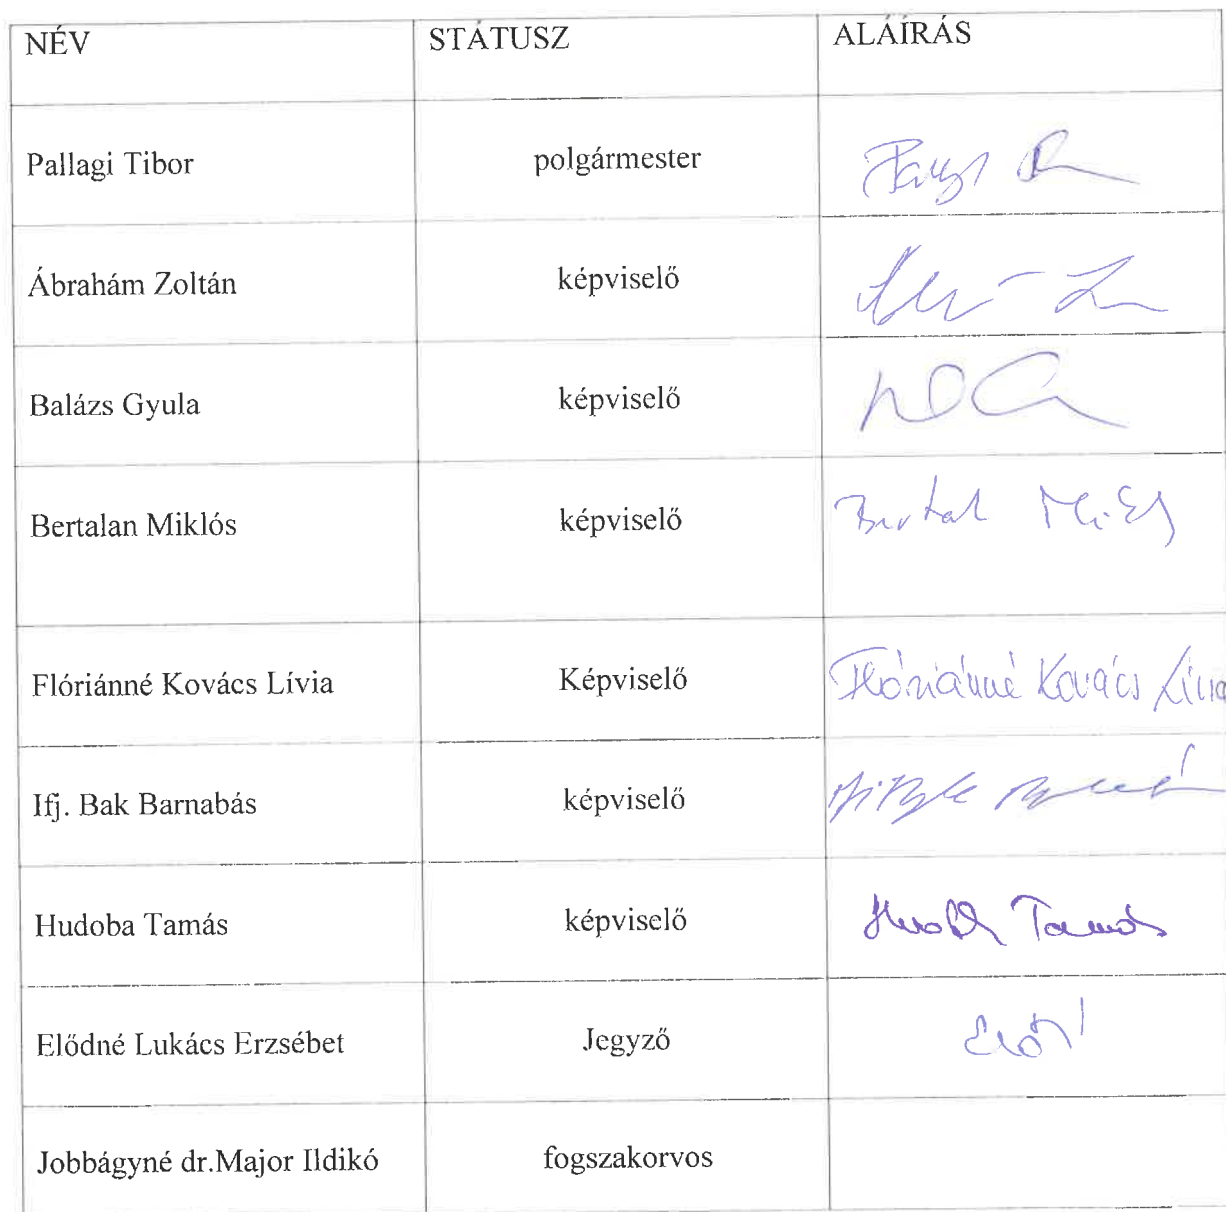 NÉV STÁTUSZ ALÁÍRÁS
Pallagi Tibor polgármester
Ábrahám Zoltán képviselő
Balázs Gyula képviselő
Bertalan Miklós képviselő
Flóriánné Kovács Lívia Képviselő Flóriánné Kovács Lívia
Ifj. Bak Barnabás képviselő
Hudoba Tamás képviselő Tamás
Elődné Lukács Erzsébet Jegyző
Jobbágyné dr.Major Ildikó fogszakorvos